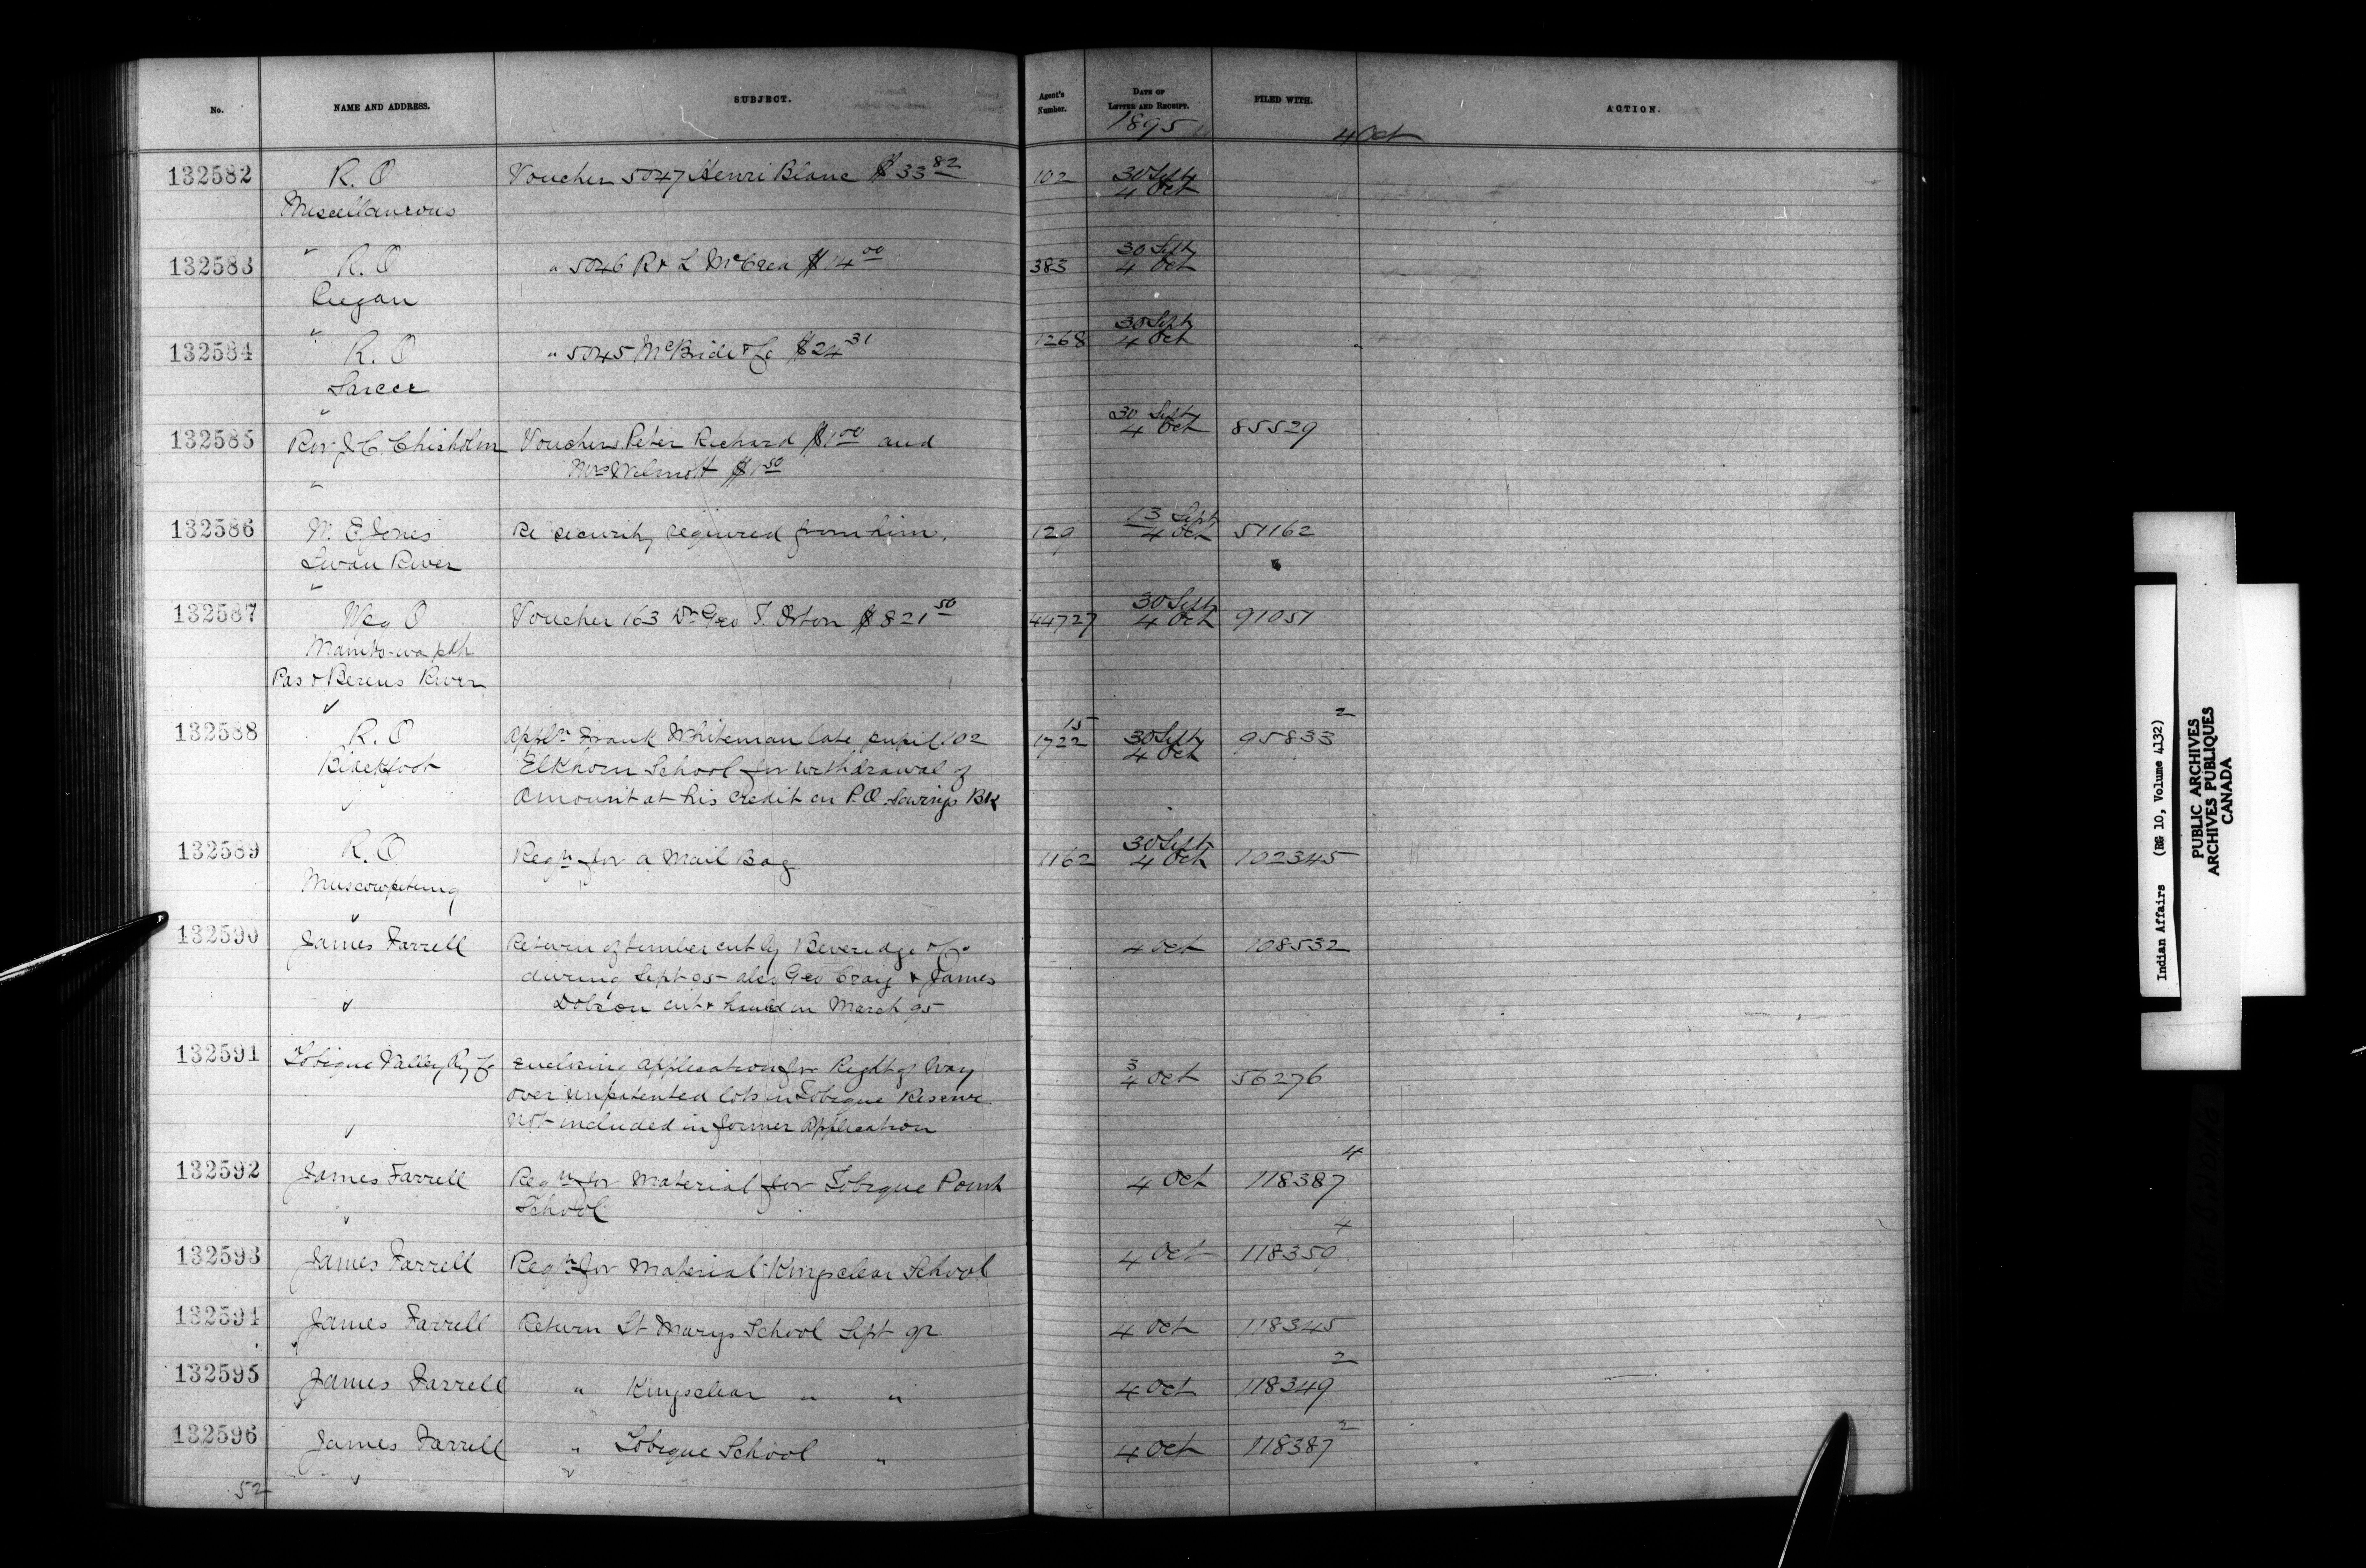 No. NAME AND ADDRESS. SUBJECT. Agent's Number. DATE OF LETTER AND RECEIPT. FILED WITH. ACTION.
1895 4 Oct
132582 R. O Voucher 5047 Henri Blanc $33 82 102 30 Sept
Miscellaneous 4 Oct
132583 R. O " 5046 R & L McCrea $14 00 383 30 Sept
Piegan 4 Oct
132584 R. O " 5045 McBride & Co $24 31 1268 30 Sept
Sarcee 4 Oct
132585 Rev J. C. Chisholm Vouchers Peter Richard $1 00 and 30 Sept 4 Oct 85529
Mrs Wilmott $1 50
132586 W. E. Jones Re security required from him. 129 13 Sept 4 Oct 51162
Swan River
132587 Wpg O Voucher 163 Dr Geo T. Orton $821 50 44727 30 Sept 4 Oct 91051
Manito-wa pah
Pas & Berens River
132588 R. O Appln Frank Whiteman late pupil 102 15 1722 30 Sept 95833 2
Blackfoot Elkhorn School for withdrawal of 4 Oct
amount at his credit en P.O. Savings Bk
132589 R. O. Reqn for a Mail Bag 1162 30 Sept 4 Oct 102345
Muscowpetung
132590 James Farrell Return of timber cut by Beveridge & Co. 4 Oct 108532
during Sept 95 also Geo Craig & James
Dobson cut & hauled in March 95
132591 Tobique Valley Ry Co Enclosing application for Right of Way 3 4 Oct 56276
over unpatented lots in Tobique Reserve
not included in former Application
132592 James Farrell Reqn for Material for Tobique Point 4 Oct 118387 4
School
132593 James Farrell Reqn for Material Kingsclear School 4 Oct 118359 4
132594 James Farrell Return St Marys School Sept qr 4 Oct 118345
132595 James Farrell " Kingsclear " " 4 Oct 118349 2
132596 James Farrell " Tobique School " 4 Oct 118387 2
52
Indian Affairs (RG 10, Volume 4132)
PUBLIC ARCHIVES
ARCHIVES PUBLIQUES
CANADA